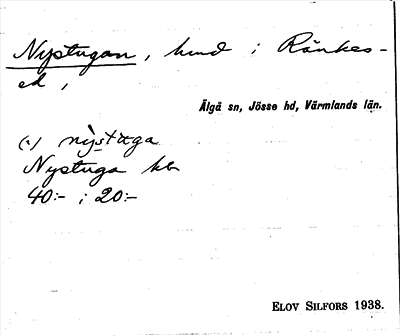 Nystugan, hmd i Ränkes-
ed,
Älgå sn, Jösse hd, Värmlands län.
(-) nỳstùga
Nystuga hn
40:- i 20:-
ELOV SILFORS 1938.